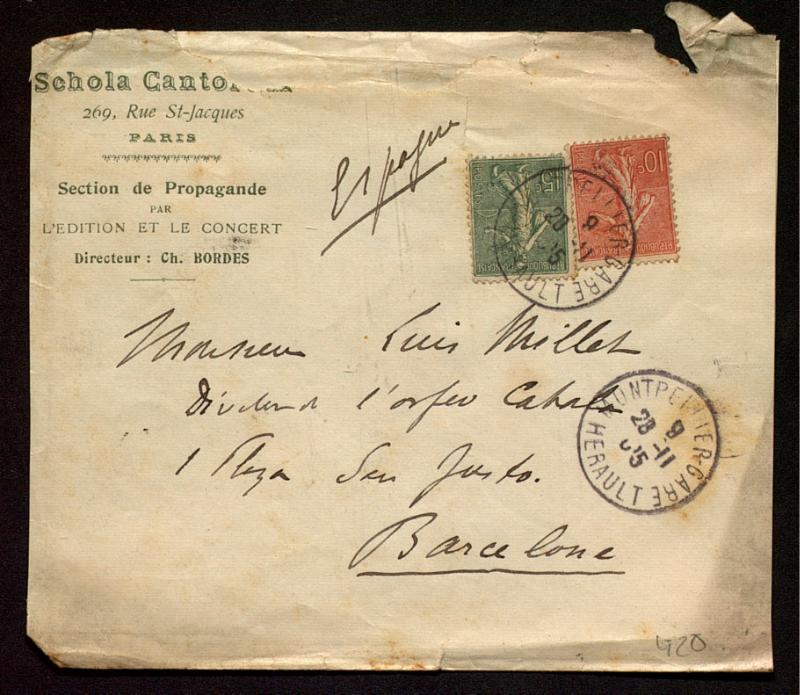 Schola Canto
269, Rue St-Jacques
PARIS
Section de Propagande
PAR
L'EDITION ET LE CONCERT
Directeur : Ch. BORDES
Espagne
15c
RÉPUBLIQUE FRANÇAISE
10c
RÉPUBLIQUE FRANÇAISE
Monsieur Luis Millet
l'orfeo Catala
1 Plaza San Justo.
Barcelone
MONTPELLIER-GARE
9
28-11
05
HERAULT
420